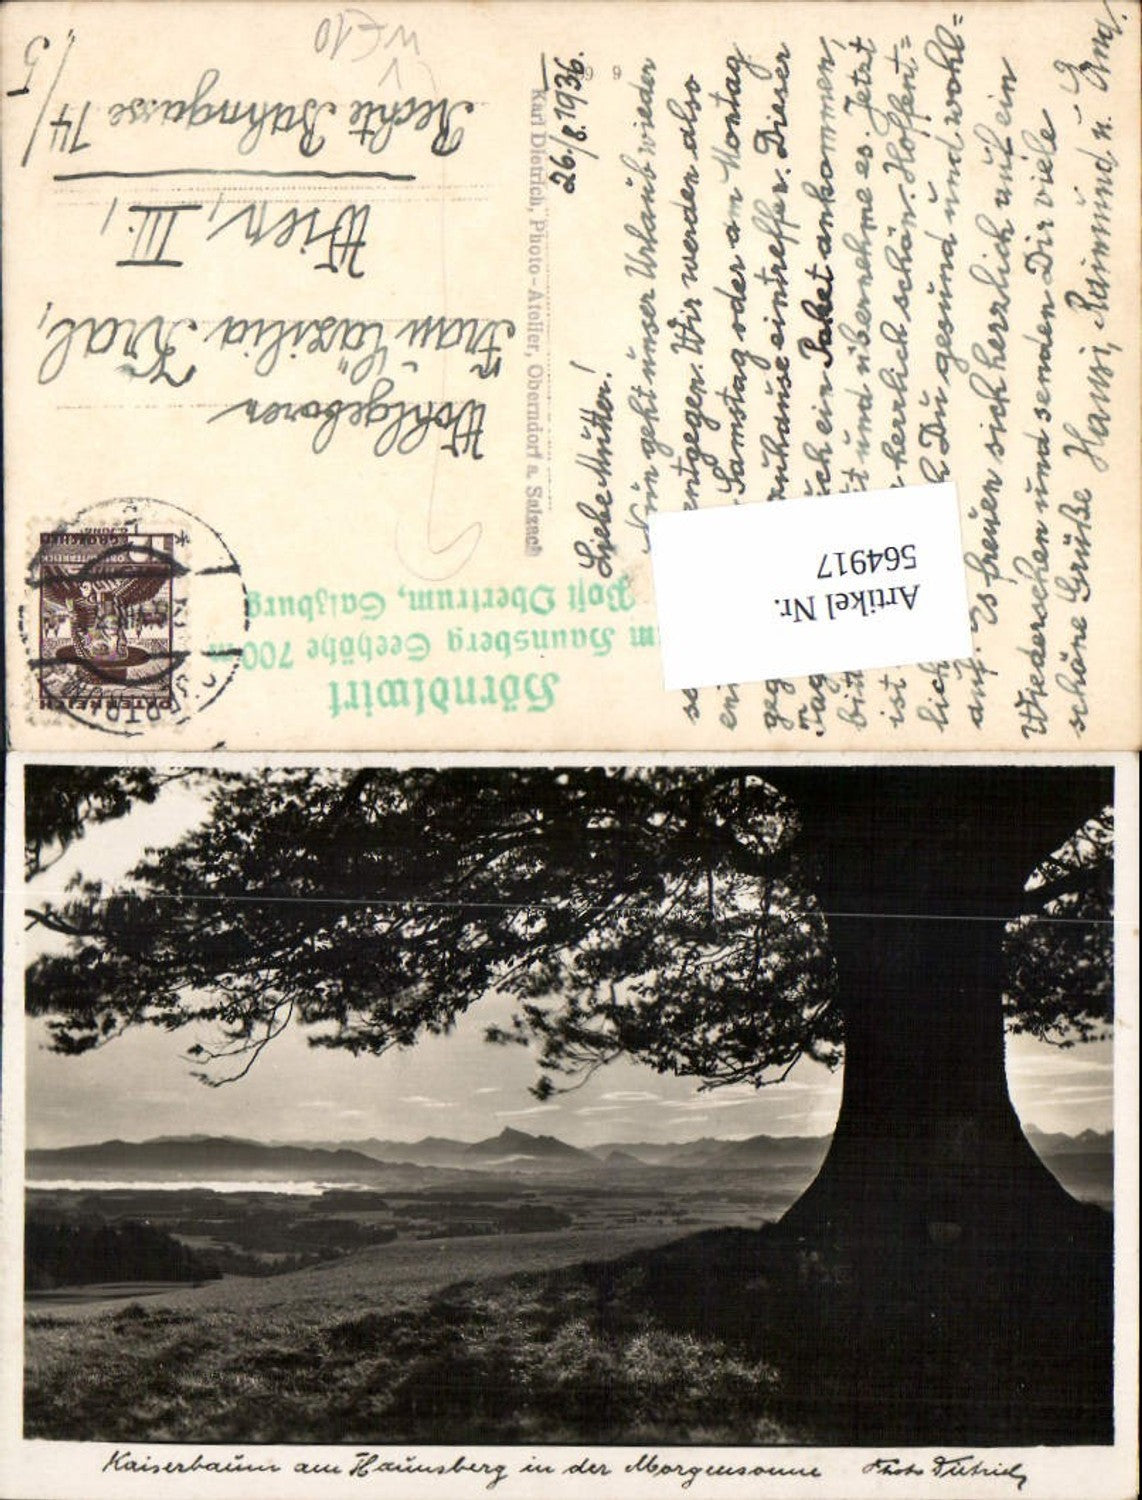 Hörndlwirt
m Haunsberg Seehöhe 700 m
Post Obertrum, Salzburg
ÖSTERREICH
Wohlgeboren
Frau Cäzilia Kral,
Wien, III.,
Rechte Bahngasse 14/
/5
WE10
Karl Dietrich, Photo-Atelier, Oberndorf a. Salzach
26./8.1936.
Liebe Mutter!
Nun geht unser Urlaub wieder
entgegen. Wir werden also
Samstag oder am Montag
zuhause eintreffen. Dieser
ein Paket ankommen,
und übernehme es. Jetzt
ist herrlich schön. Hoffent=
lich Du gesund und wohl=
auf. Es freuen sich herzlich auf ein
Wiedersehen und senden Dir viele
schöne Grüße Hansi, Raimund u.
Artikel Nr.
564917
Kaiserbaum am Haunsberg in der Morgensonne Photo Dietrich